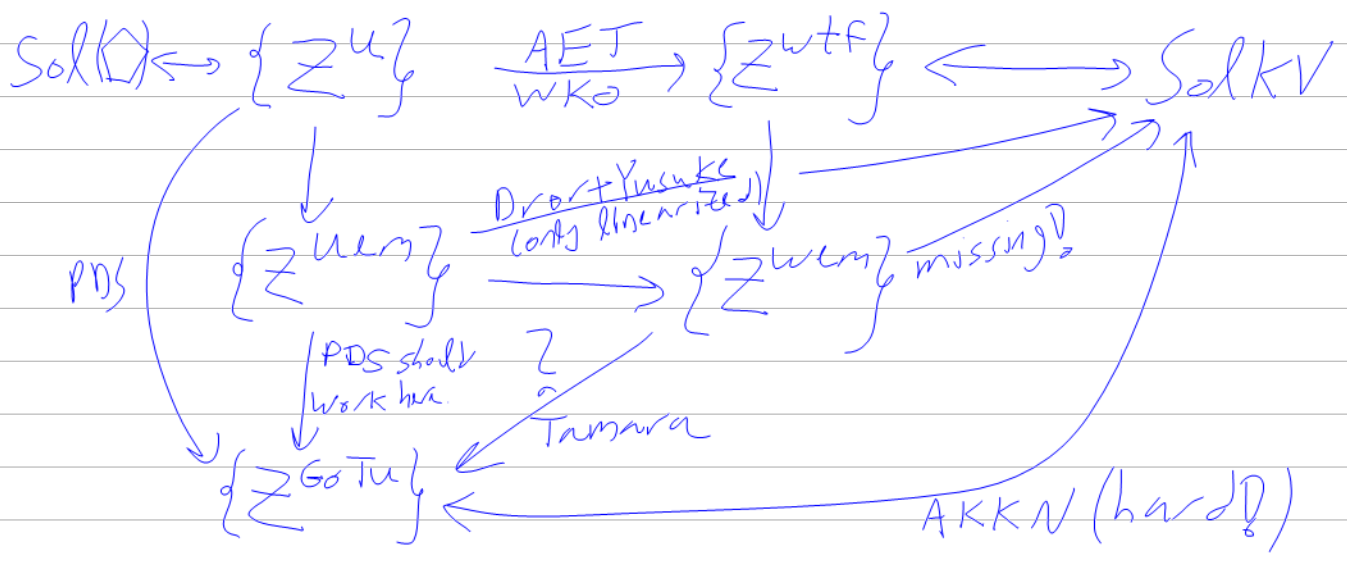 Sol(⬠) ↔ {Z^u} AET WKO → {Z^wtf} ↔ Sol KV
Dror+Yusuke
(only linearized)
PDS {Z^uem} → {Z^wem} missing!
PDS should ?
work here.
Tamara
{Z^GoTu} AKKN (hard!)